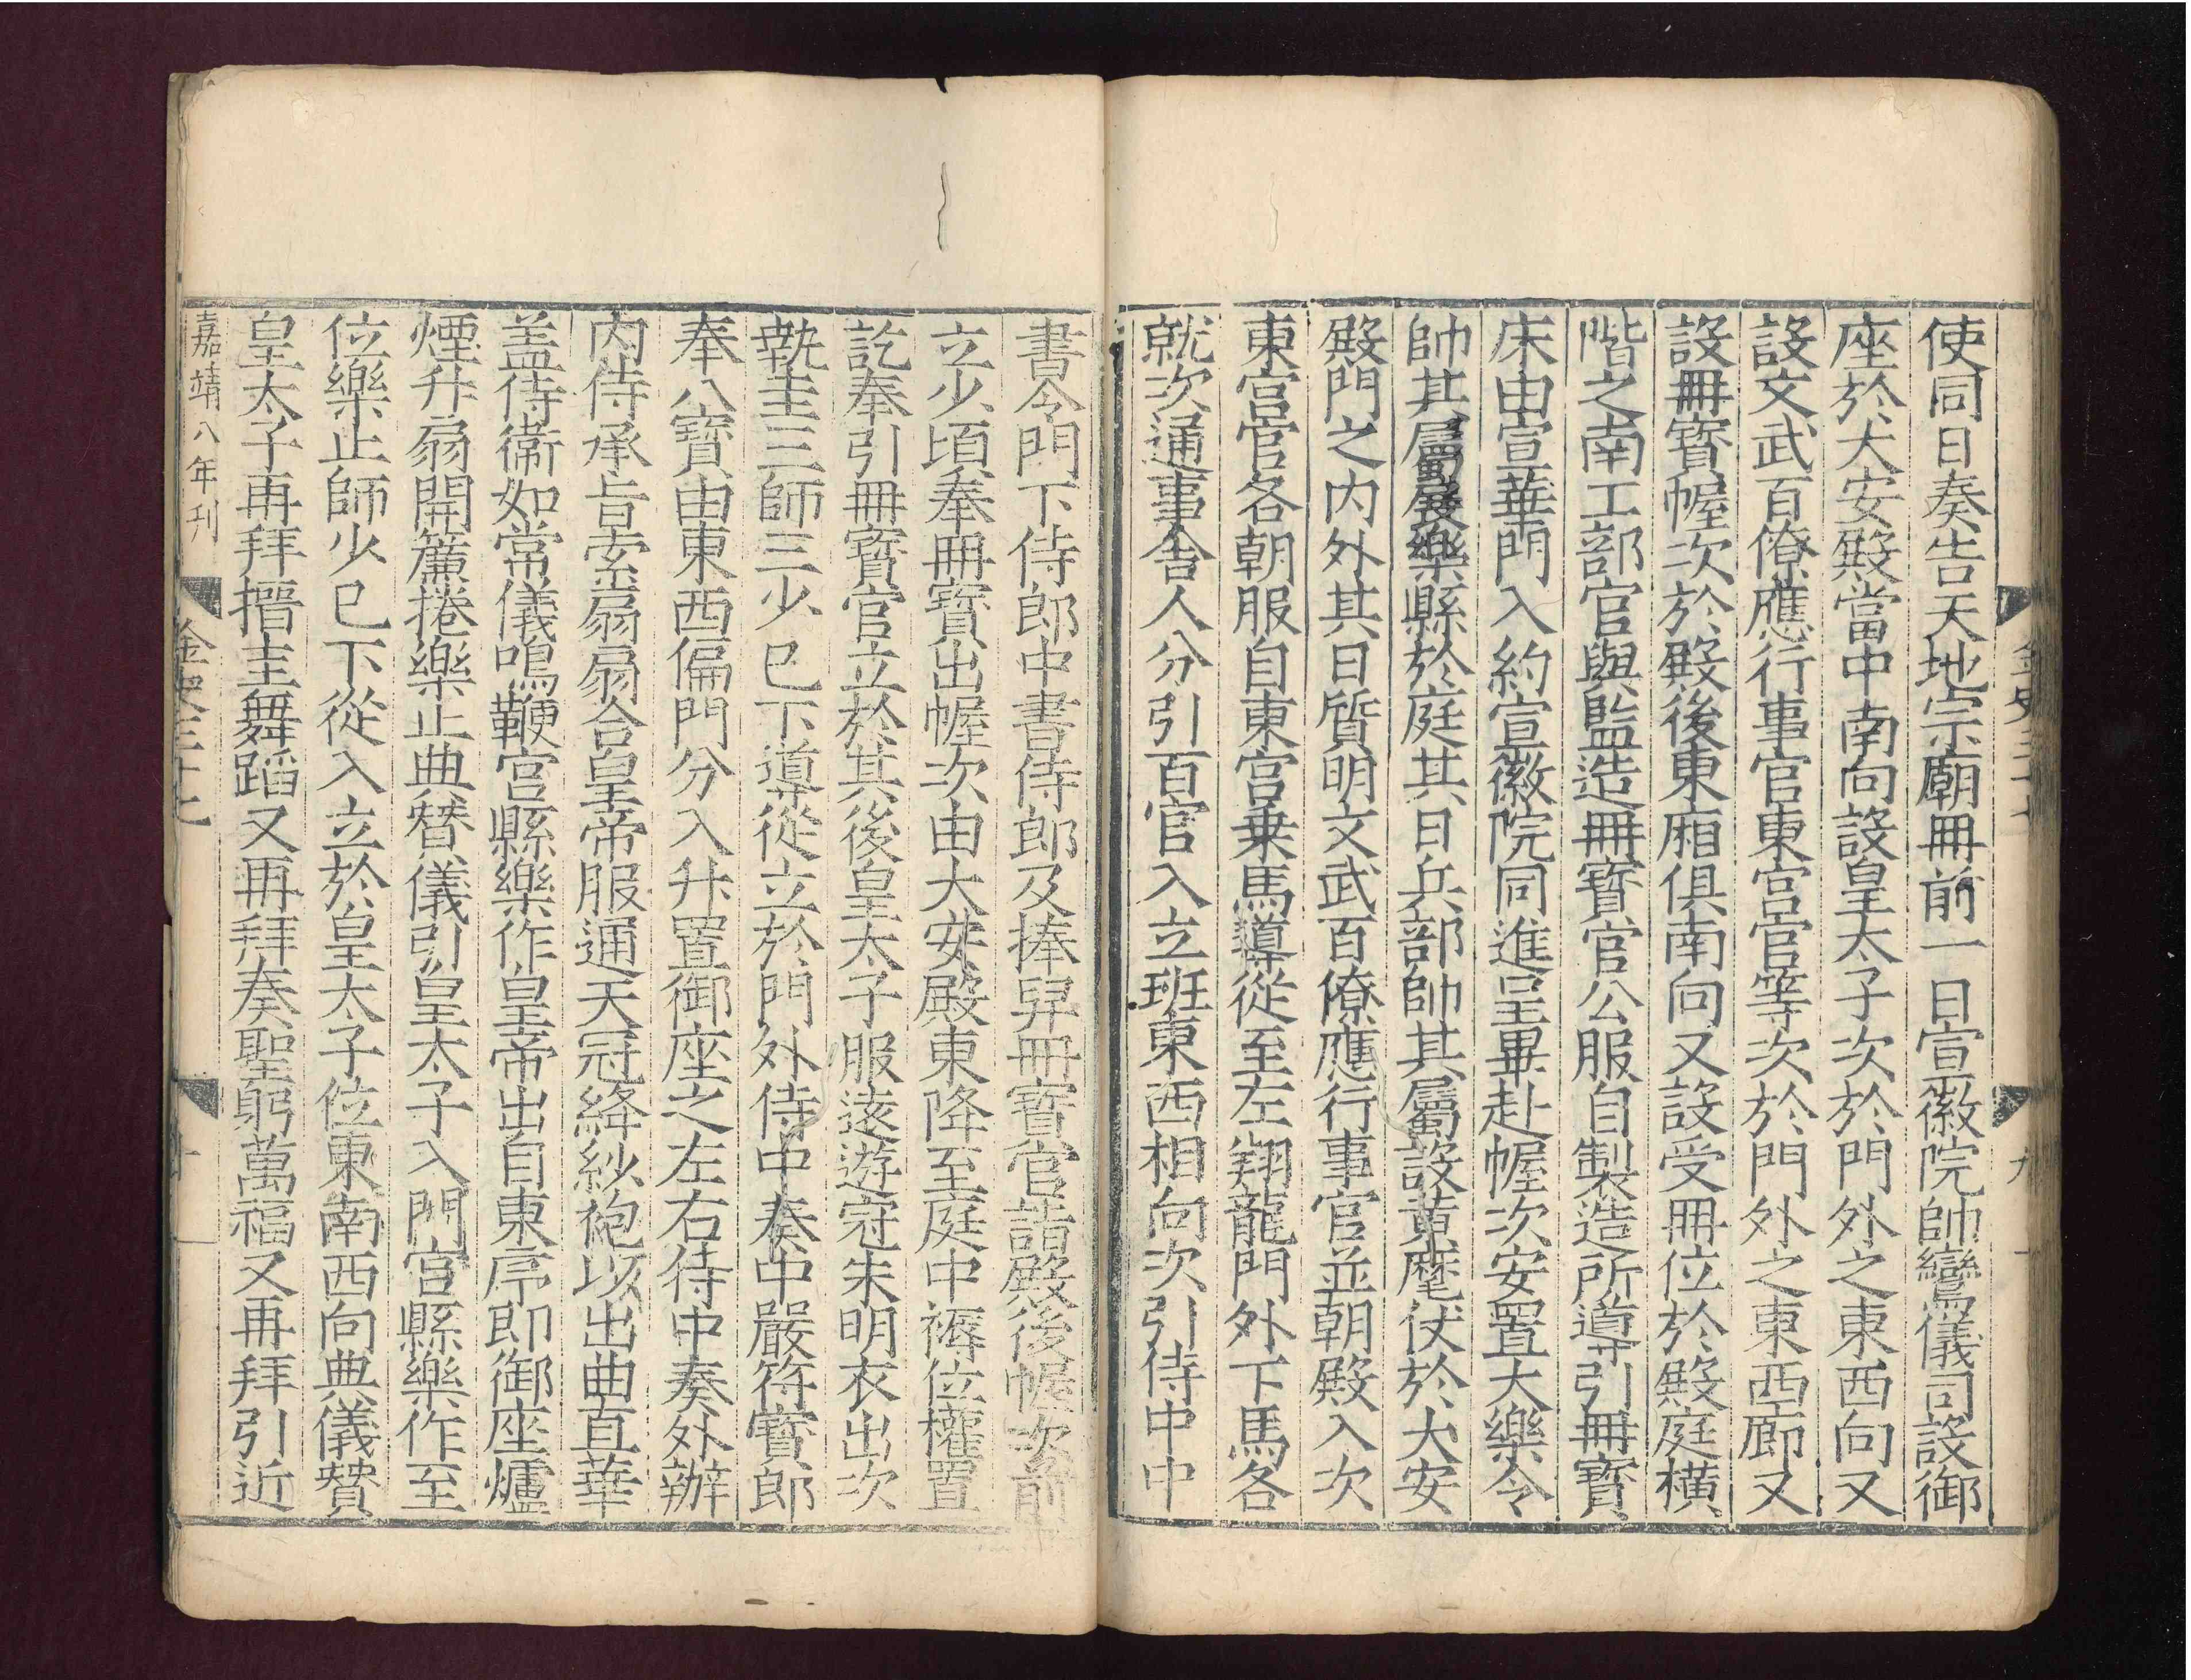 使同日奏告天地宗廟冊前一日宣徽院帥鸞儀司設御
座於大安殿當中南向設皇太子次於門外之東西向又
設文武百僚應行事官東宮官等次於門外之東西廊又
設冊寶幄次於殿後東廂俱南向又設受冊位於殿庭橫
階之南工部官與監造冊寶官公服自製造所導引冊寶
床由宣華門入約宣徽院同進呈畢赴幄次安置大樂令
帥其屬展樂縣於庭其日兵部帥其屬設黃麾仗於大安
殿門之內外其日質明文武百僚應行事官並朝殿入次
東宮官各朝服自東宮乗馬導從至左翔龍門外下馬各
就次通事舍人分引百官入立班東西相向次引侍中中
金史三十七
九
書令門下侍郎中書侍郎及捧舁冊寶官詣殿後幄次前
立少頃奉冊寶出幄次由大安殿東降至庭中褥位權置
訖奉引冊寶官立於其後皇太子服遠遊冠朱明衣出次
執圭三師三少已下導從立於門外侍中奏中嚴符寶郎
奉八寶由東西偏門分入升置御座之左右待中奏外辦
內侍承旨索扇扇合皇帝服通天冠絳紗袍以出曲直華
盖侍衞如常儀鳴鞭宮縣樂作皇帝出自東序即御座爐
煙升扇開簾捲樂止典替儀引皇太子入門宮縣樂作至
位樂止師少已下從入立於皇太子位東南西向典儀贊
皇太子再拜搢圭舞蹈又再拜奏聖躬萬福又再拜引近
嘉靖八年刊
金史三十七
十